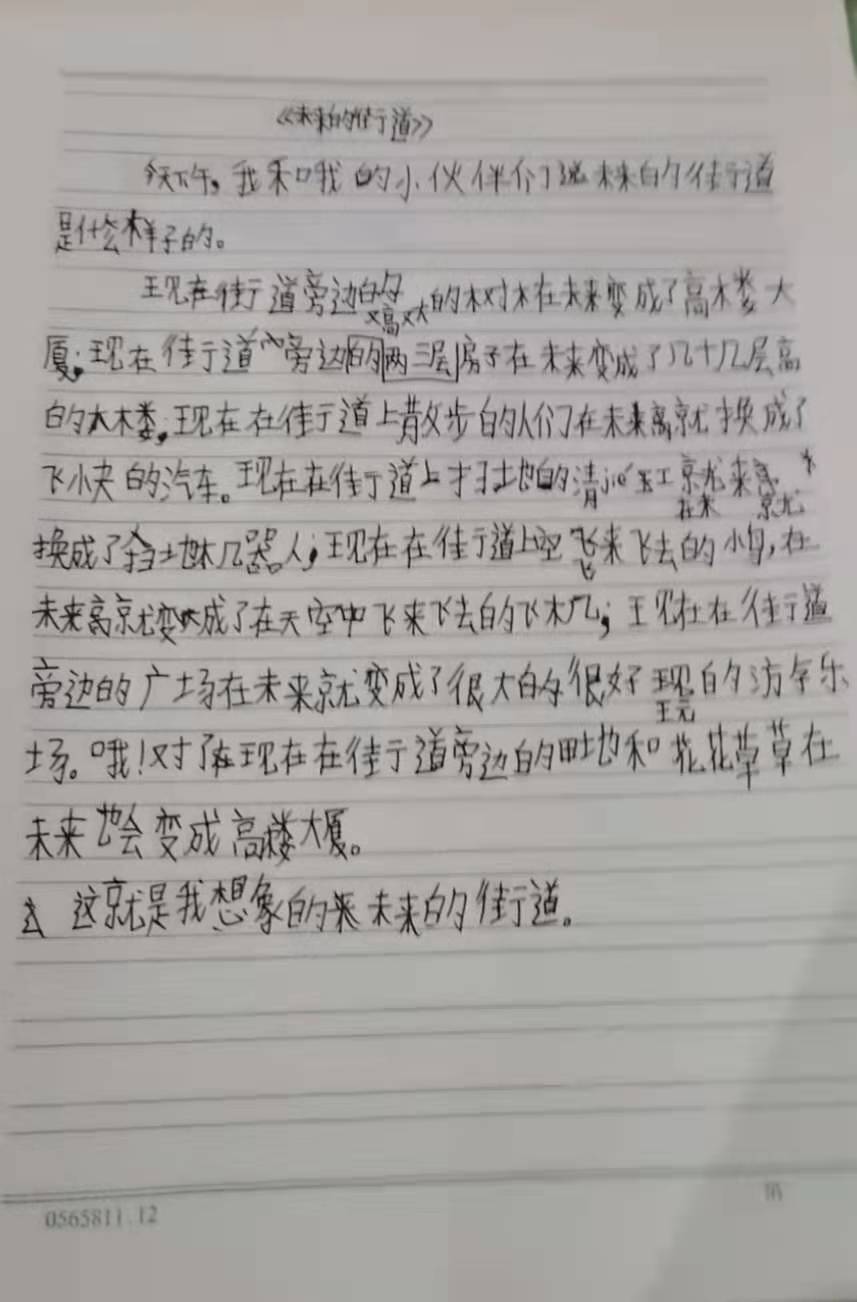 《未来的街道》
今天下午，我和我的小伙伴们说未来的街道
是什么样子的。
现在街道旁边的又高又大的树木在未来变成了高楼大
厦；现在街道旁边的两三层房子在未来变成了几十几层高
的大楼，现在在街道上散步的人们在未来就换成了
飞快的汽车。现在在街道上扫地的清洁工在未来就
换成了扫地机器人；现在在街道上空飞来飞去的小鸟，在
未来就变成了在天空中飞来飞去的飞机；现在在街道
旁边的广场在未来就变成了很大的很好玩的游乐
场。哦！对了在现在在街道旁边的田地和花花草草在
未来也会变成高楼大厦。
这就是我想象的未来的街道。
0565811.12